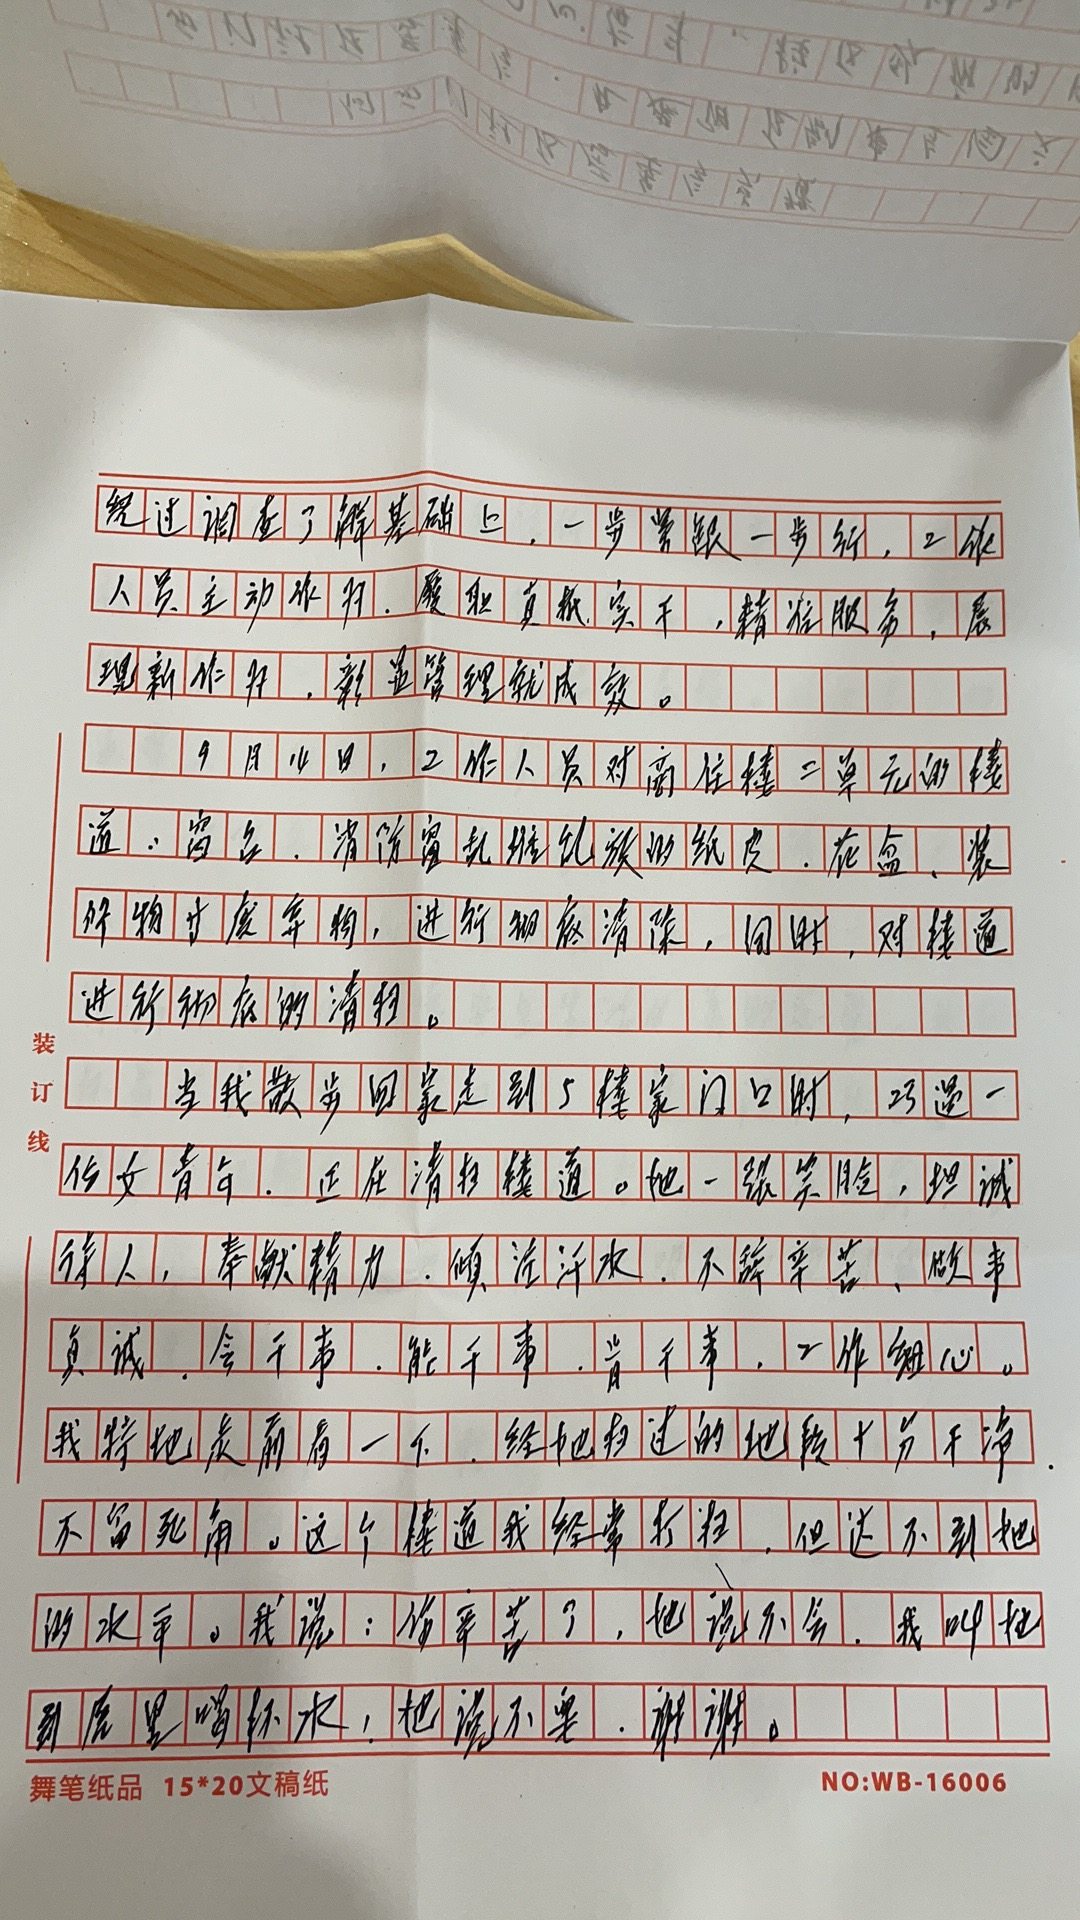 经过调查了解基础上，一步紧跟一步行，工作
人员主动作为，履职真抓实干，精准服务，展
现新作为，彰显管理就成效。
9月14日，工作人员对商住楼二单元的楼
道、窗台、消防窗乱堆乱放的纸皮、花盆、装
修物时废弃物，进行彻底清除，同时，对楼道
进行彻底的清扫。
当我散步回家走到5楼家门口时，巧遇一
位女青年，正在清扫楼道。她一张笑脸，坦诚
待人，奉献精力、倾注汗水、不辞辛苦、做事
真诚、会干事、能干事、肯干事，工作细心。
我特地上前看一下，经她扫过的地段十分干净，
不留死角。这个楼道我经常打扫，但达不到她
的水平。我说：你辛苦了，她说不会，我叫她
到房里喝杯水，她说不要，谢谢。
装订线
舞笔纸品 15*20文稿纸 NO:WB-16006